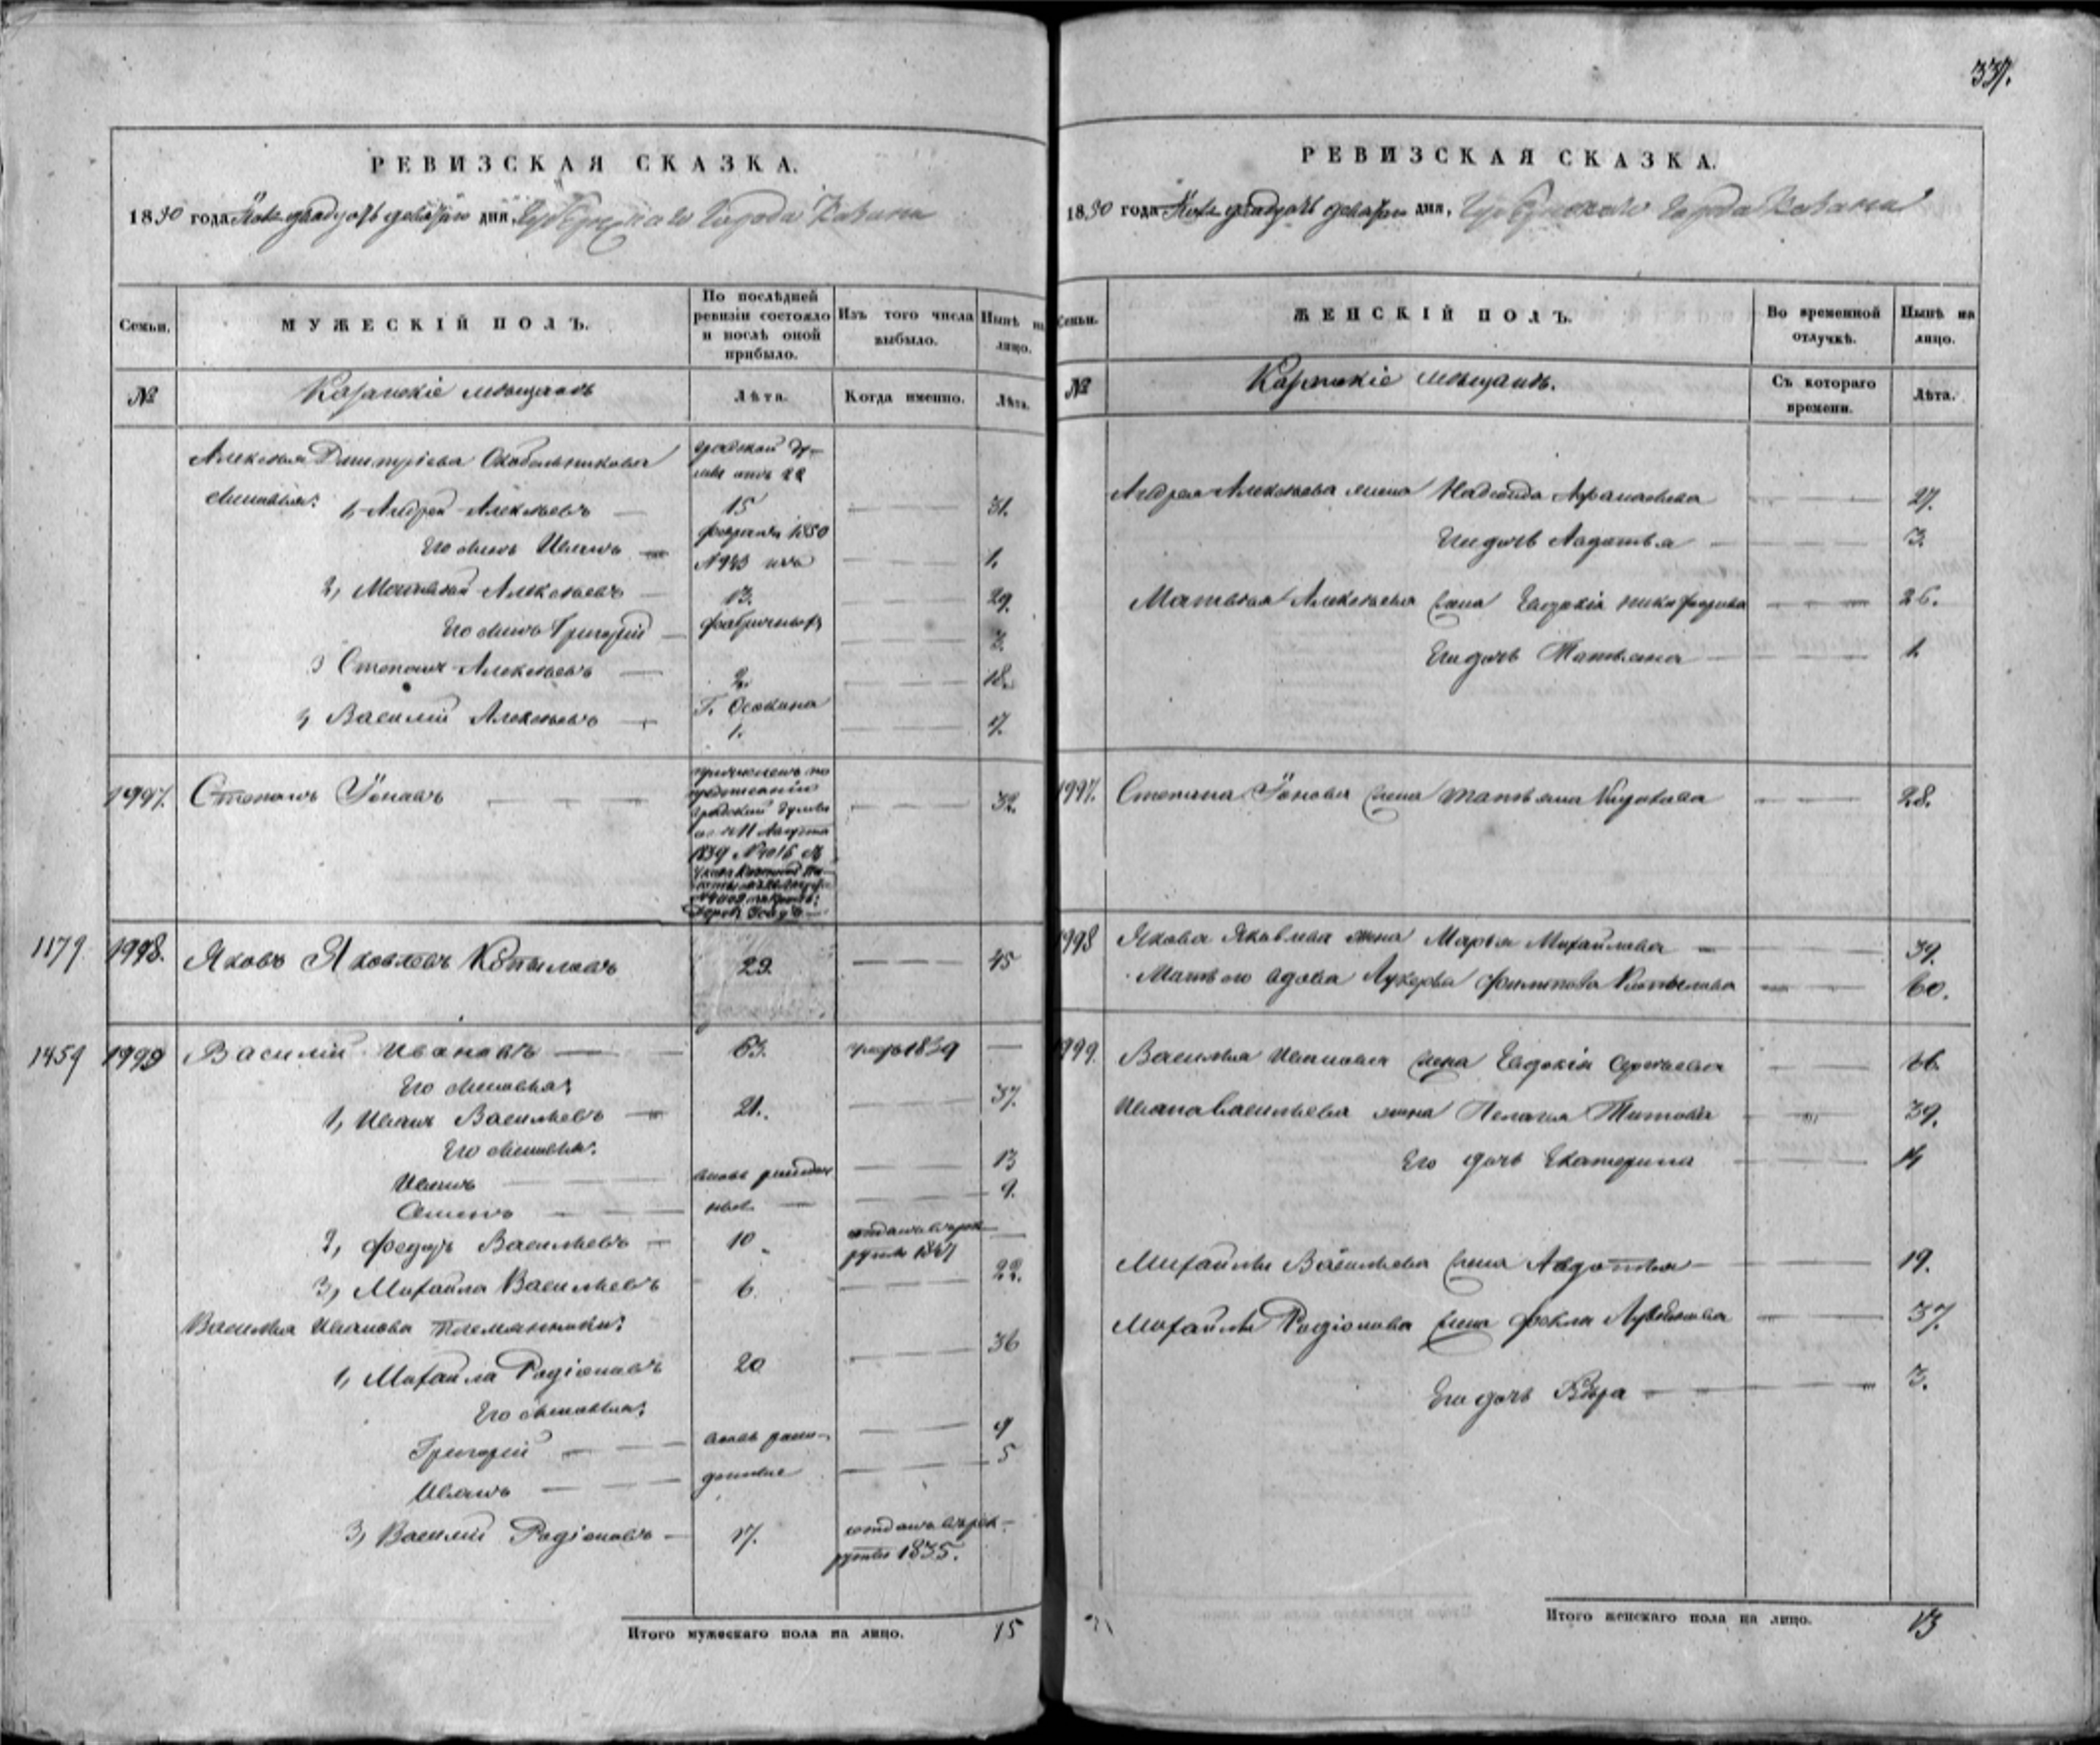 337.
РЕВИЗСКАЯ СКАЗКА.
1850 года дня Губернскаго Города Казани
Семьи.
МУЖЕСКІЙ ПОЛЪ.
По послѣдней ревизіи состояло и послѣ оной прибыло.
Изъ того числа выбыло.
Нынѣ на лицо.
№
Казанскіе мѣщане
Лѣта.
Когда именно.
Лѣта.
Алексѣя Дмитріева
градской ду-
мы отъ 22
сыновья: 1, Андрей Алексѣевъ 15 31.
февраля 1850
Его сынъ Иванъ 1.
2, Матвѣй Алексѣевъ 13. 29.
Его сынъ Григорій 3.
3 Степанъ Алексѣевъ 2. 18.
Г. Осокина
4, Василій Алексѣевъ 1. 17.
1997. Степанъ Іоновъ 32.
причисленъ по
градской думы
11 Августа
1839
1179 1998. Яковъ Яковлевъ Копыловъ 29. 45
1459 1999 Василій Ивановъ 63. умеръ 1839
Его сыновья:
1, Иванъ Васильевъ 21. 37.
Его сыновья:
Иванъ вновь рожден 13
Семенъ ные 9.
2, Федоръ Васильевъ 10 отданъ въ рек-
руты 1847
3, Михайла Васильевъ 6. 22.
Василья Иванова племянники:
1, Михайла Родіоновъ 20 36
Его сыновья:
Григорій вновь рож- 9
Иванъ денные 5
3, Василій Родіоновъ 17. отданъ въ рек-
руты 1835.
Итого мужескаго пола на лицо. 15
РЕВИЗСКАЯ СКАЗКА.
1850 года дня, Губернскаго города Казани
Семьи.
ЖЕНСКІЙ ПОЛЪ.
Во временной отлучкѣ.
Нынѣ на лицо.
№
Казанскіе мѣщане.
Съ котораго времени.
Лѣта.
Андрея Алексѣева жена Надежда Афанасьева 27.
Его дочь Авдотья 3.
Матвѣя Алексѣева жена Евдокія Никифорова 26.
Его дочь Татьяна 1.
1997. Степана Іонова жена Татьяна 28.
1998 Якова Яковлева жена Марья Михайлова 39.
вдова Лукерья Филипова Копылова 60.
1999. Василья Иванова жена Евдокія Сергѣева 66.
Ивана Васильева жена Пелагея Титова 39.
Его дочь Екатерина 4
Михайлы Васильева жена Авдотья 19.
Михайлы Родіонова жена Фекла 37.
Его дочь Вѣра 3.
Итого женскаго пола на лицо. 13